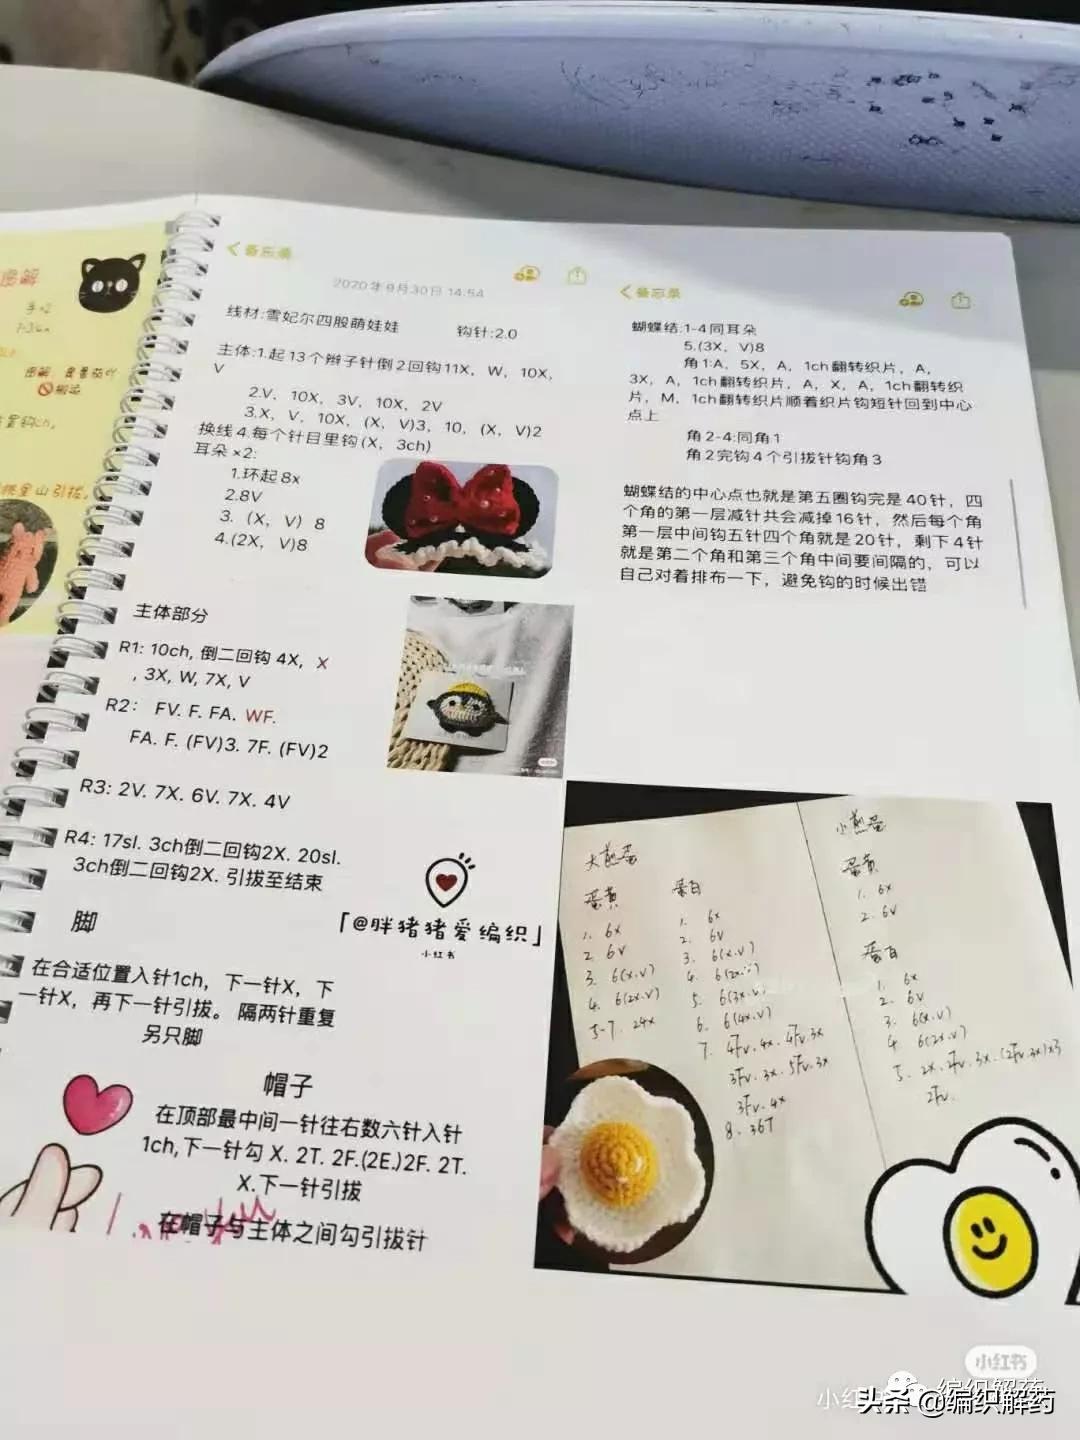 图解
备忘录
2020年9月30日 14:54
线材:雪妃尔四股萌娃娃 钩针:2.0
主体:1.起13个辫子针倒2回钩11X，W，10X，
V
2.V，10X，3V，10X，2V
3.X，V，10X，(X，V)3，10，(X，V)2
换线4.每个针目里钩(X，3ch)
耳朵×2:
1.环起8x
2.8V
3.（X，V）8
4.(2X，V)8
备忘录
蝴蝶结:1-4同耳朵
5.(3X，V)8
角1:A，5X，A，1ch翻转织片，A，
3X，A，1ch翻转织片，A，X，A，1ch翻转织
片，M，1ch翻转织片顺着织片钩短针回到中心
点上
角2-4:同角1
角2完钩4个引拔针钩角3
蝴蝶结的中心点也就是第五圈钩完是40针，四
个角的第一层减针共会减掉16针，然后每个角
第一层中间钩五针四个角就是20针，剩下4针
就是第二个角和第三个角中间要间隔的，可以
自己对着排布一下，避免钩的时候出错
主体部分
R1: 10ch, 倒二回钩 4X，X
, 3X, W, 7X, V
R2： FV. F. FA. WF.
FA. F. (FV)3. 7F. (FV)2
R3: 2V. 7X. 6V. 7X. 4V
R4: 17sl. 3ch倒二回钩2X. 20sl.
3ch倒二回钩2X. 引拔至结束
「@胖猪猪爱编织」
小红书
脚
在合适位置入针1ch，下一针X，下
一针X，再下一针引拔。隔两针重复
另只脚
帽子
在顶部最中间一针往右数六针入针
1ch,下一针勾 X. 2T. 2F.(2E.)2F. 2T.
X.下一针引拔
在帽子与主体之间勾引拔针
大煎蛋
蛋黄
1. 6X
2. 6V
3. 6(X.V)
4. 6(2X.V)
5-7. 24X
蛋白
1. 6X
2. 6V
3. 6(X.V)
4. 6(2X.
5. 6(3X.V)
6. 6(4X.V)
7. 4Fv.4X.4Fv.3X
3Fv.3X.5Fv.3X
3Fv.4X
8. 36T
小煎蛋
蛋黄
1. 6X
2. 6V
蛋白
1. 6X
2. 6V
3. 6(X.V)
4. 6(2X.V)
5. 2X.2Fv.3X.(2Fv.3X)×3
2Fv.
小红书
头条 @编织解药